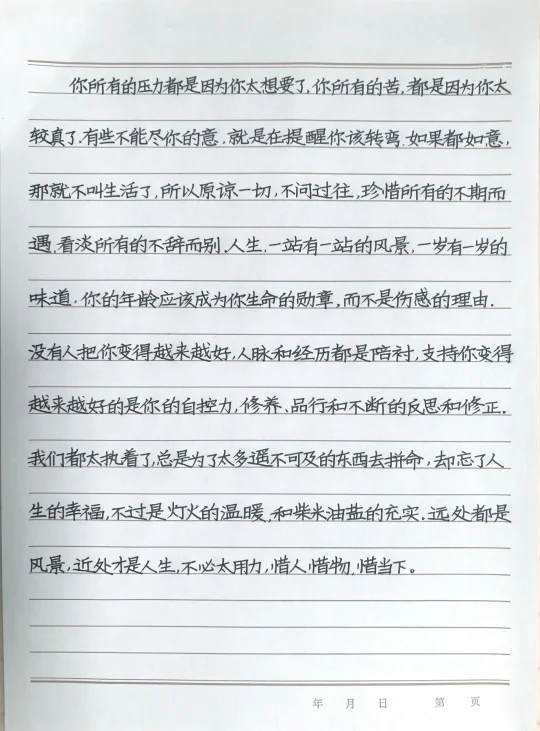 你所有的压力都是因为你太想要了,你所有的苦,都是因为你太
较真了.有些不能尽你的意,就是在提醒你该转弯.如果都如意,
那就不叫生活了,所以原谅一切,不问过往,珍惜所有的不期而
遇,看淡所有的不辞而别.人生,一站有一站的风景,一岁有一岁的
味道,你的年龄应该成为你生命的勋章,而不是伤感的理由.
没有人把你变得越来越好,人脉和经历都是陪衬,支持你变得
越来越好的是你的自控力,修养、品行和不断的反思和修正.
我们都太执着了,总是为了太多遥不可及的东西去拼命,却忘了人
生的幸福,不过是灯火的温暖,和柴米油盐的充实.远处都是
风景,近处才是人生,不必太用力,惜人,惜物,惜当下。
年 月 日 第 页